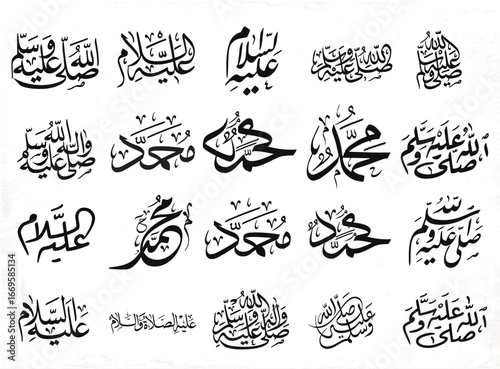 صلى الله عليه وسلم
عليه السلام
عليه السلام
صلى الله عليه وسلم
صلى الله عليه وسلم
صلى الله عليه وسلم
محمد
محمد
محمد
صلى الله عليه وسلم
عليه السلام
محمد
محمد
محمد
صلى الله عليه وسلم
عليه السلام
عليه الصلاة والسلام
صلى الله عليه وسلم
صلى الله عليه وسلم
Adobe Stock | #1669585134